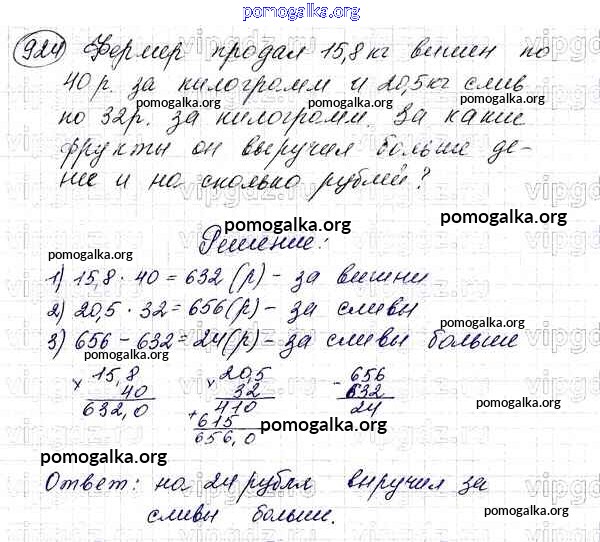 pomogalka.org
924 Фермер продал 15,8 кг вишен по
40 р. за килограмм и 20,5 кг слив
pomogalka.org pomogalka.org
по 32 р. за килограмм. За какие
pomogalka.org
фрукты он выручил больше де-
нег и на сколько рублей?
pomogalka.org pomogalka.org
Решение:
pomogalka.org
1) 15,8 · 40 = 632 (р) - за вишни
2) 20,5 · 32 = 656 (р) - за сливы
pomogalka.org
3) 656 - 632 = 24 (р) - за сливы больше
pomogalka.org pomogalka.org
× 15,8 × 20,5 - 656
40 32 632
632,0 410 24
+ 615
656,0
pomogalka.org
pomogalka.org pomogalka.org
Ответ: на 24 рубля выручил за
сливы больше.
pomogalka.org
pomogalka.org